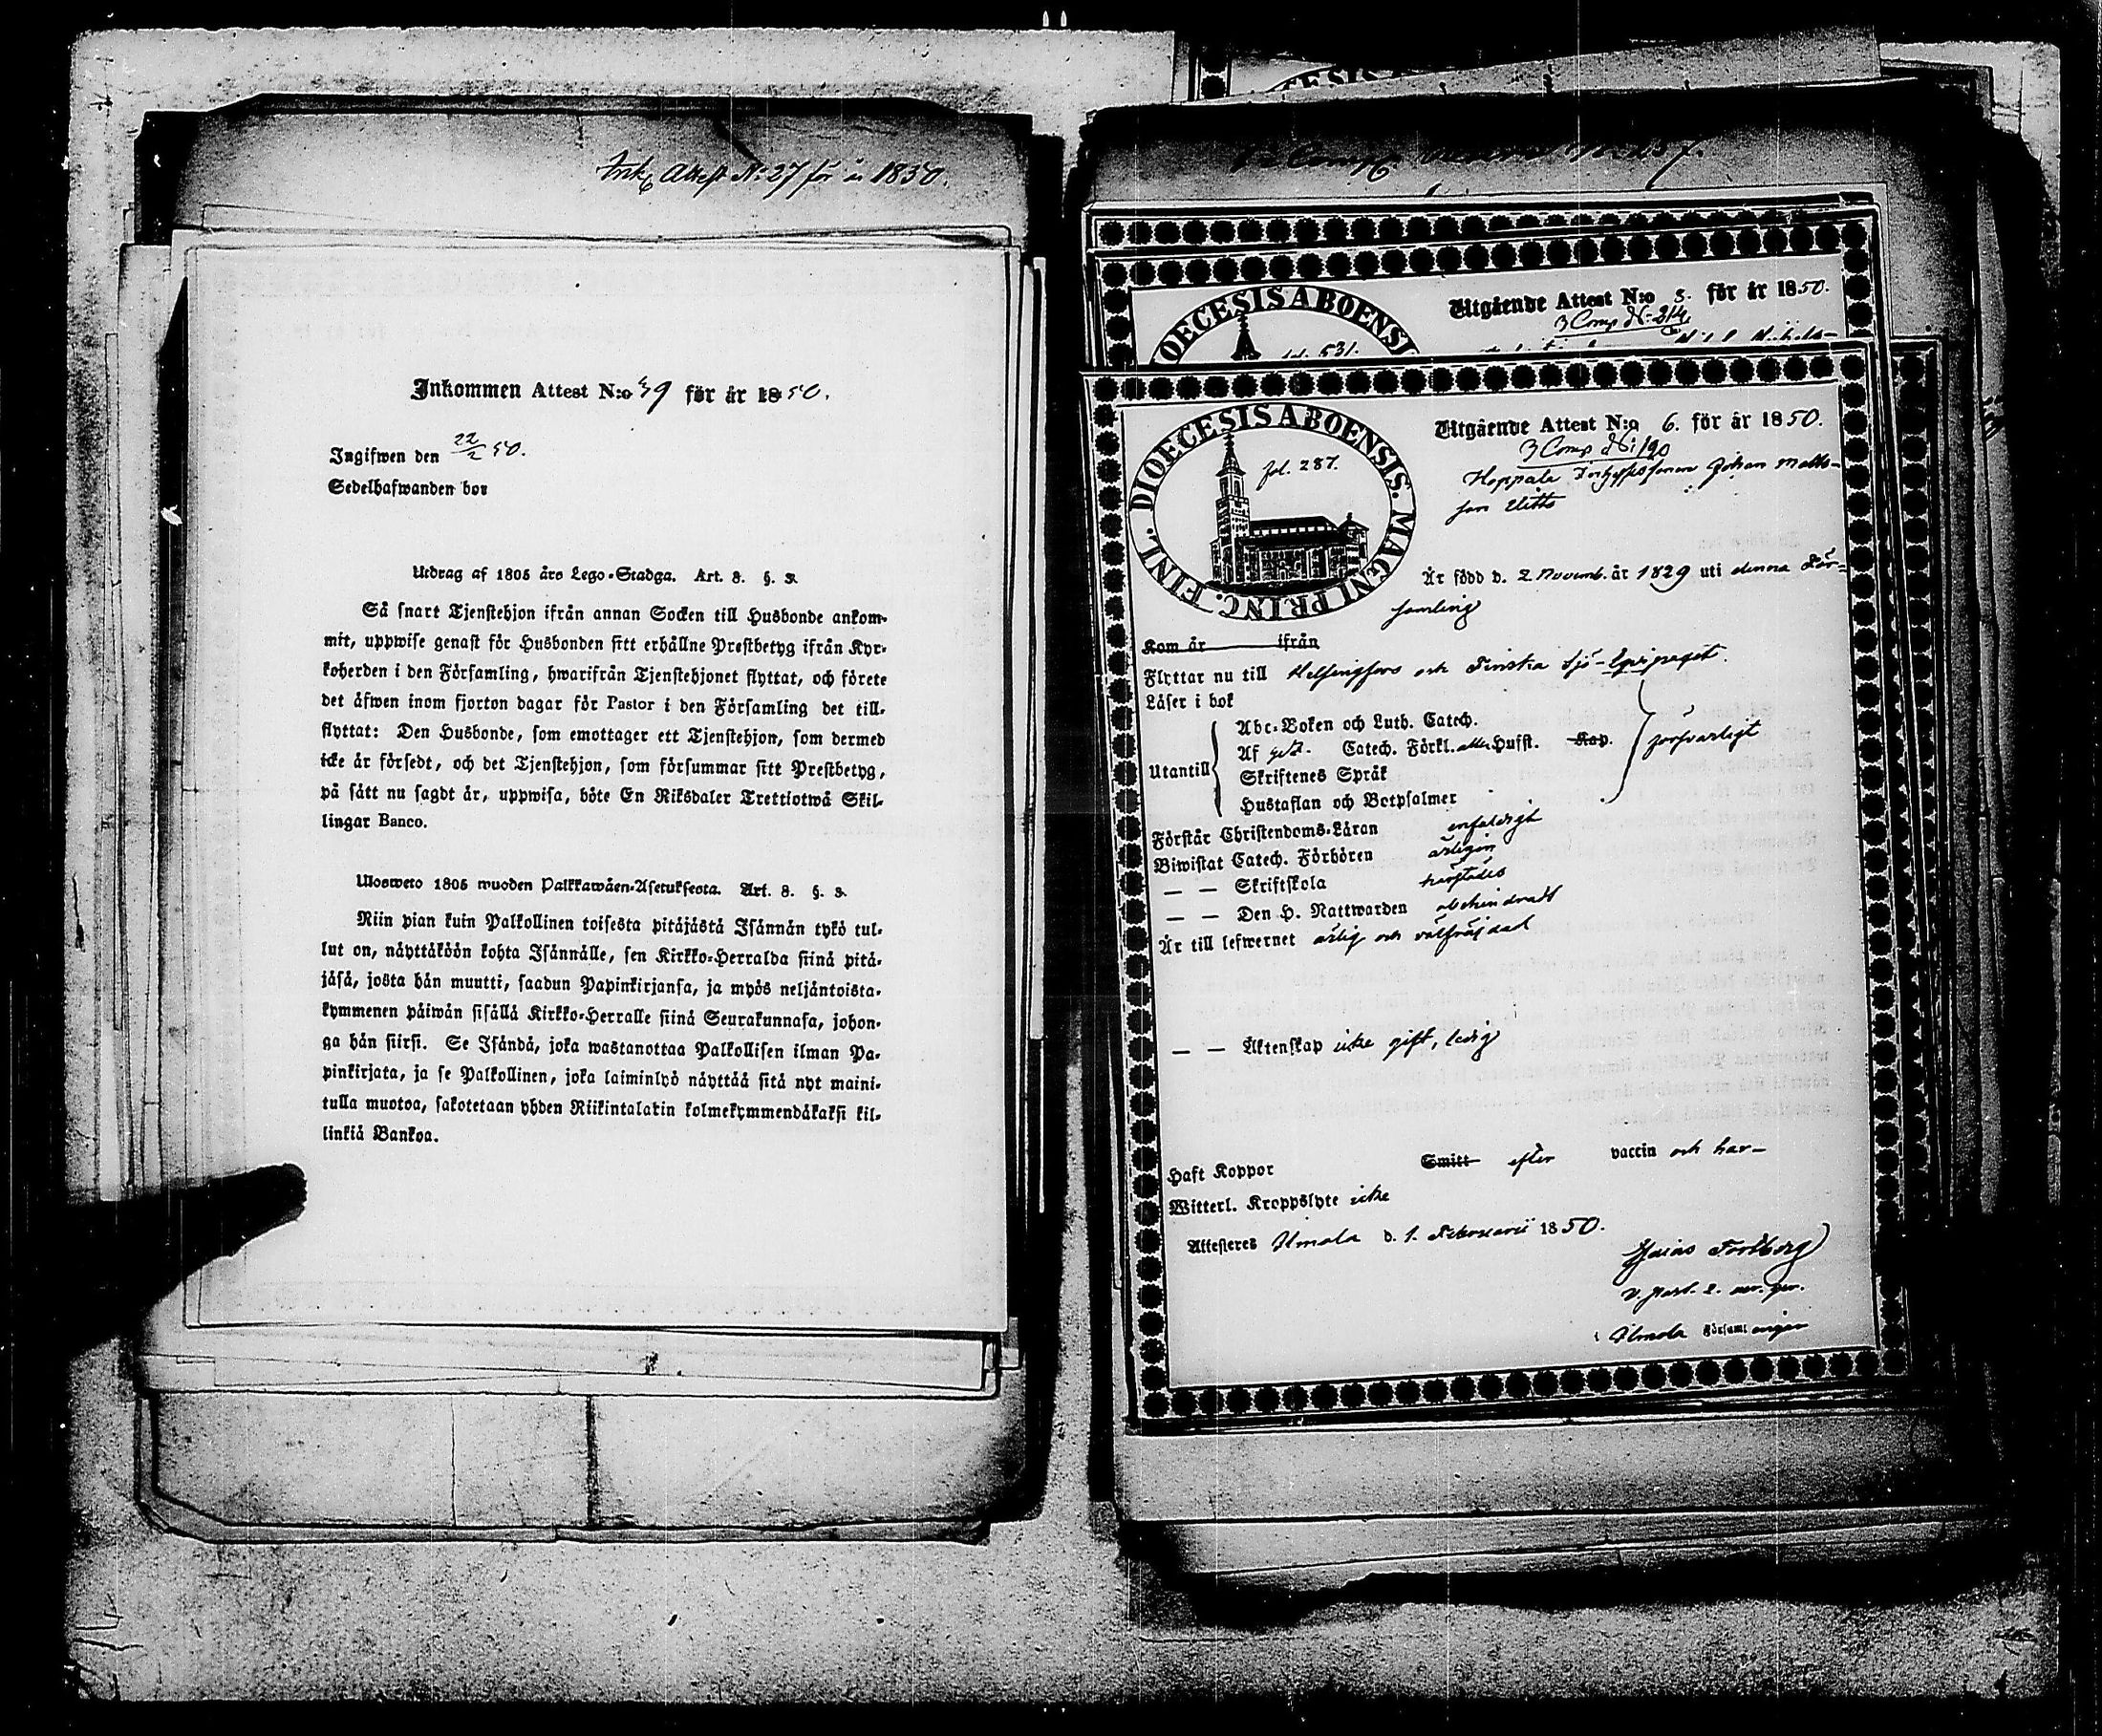 Ink. Attest N:o 27 för år 1850.
Inkommen Attest N:o 39 för år 1850.
Ingifwen den 22/2 50.
Sedelhafwanden bor
Utdrag af 1805 års Lego-Stadga. Art. 8. §. 3.
Så snart Tjenstehjon ifrån annan Socken till Husbonde ankom-
mit, uppwise genast för Husbonden sitt erhållne Prestbetyg ifrån Kyr-
koherden i den Församling, hwarifrån Tjenstehjonet flyttat, och förete
det äfwen inom fjorton dagar för Pastor i den Församling det till-
flyttat: Den Husbonde, som emottager ett Tjenstehjon, som dermed
icke är försedt, och det Tjenstehjon, som försummar sitt Prestbetyg,
på sätt nu sagdt är, uppwisa, böte En Riksdaler Trettiotwå Skil-
lingar Banco.
Ulosweto 1805 wuoden Palkkawäen-Asetuksesta. Art. 8. §. 3.
Niin pian kuin Palkollinen toisesta pitäjästä Isännän tykö tul-
lut on, näyttäköön kohta Isännälle, sen Kirkko-Herralda siinä pitä-
jäsä, josta hän muutti, saadun Papinkirjansa, ja myös neljäntoista-
kymmenen päiwän sisällä Kirkko-Herralle siinä Seurakunnasa, johon-
ga hän siirsi. Se Isändä, joka wastanottaa Palkollisen ilman Pa-
pinkirjata, ja se Palkollinen, joka laiminlyö näyttää sitä nyt maini-
tulla muotoa, sakotetaan yhden Riikintalarin kolmekymmendäkaksi kil-
linkiä Bankoa.
DIOECESIS ABOENSI
fol. 531.
Utgående Attest N:o 5. för år 1850.
3 Comp N: 214
DIOECESIS ABOENSIS. MAGNI PRINC. FINL.
fol. 287.
Utgående Attest N:o 6. för år 1850.
3 Comp N: 190
Hoppala Johan Matts-
son
Är född d. 2 Novemb. år 1829 uti denna För-
samling
Kom år ifrån
Flyttar nu till Helsingfors och Finska Sjö-Equipaget.
Läser i bok
Utantill
Abc-Boken och Luth. Catech.
Af Catech. Förkl. Hufst. Kap. försvarligt
Skriftenes Språk
Hustaflan och Botpsalmer
Förstår Christendoms-Läran enfaldigt
Biwistat Catech. Förhören årligen
— — Skriftskola
— — Den H. Nattwarden obehindradt
Är till lefwernet ärlig och välfräjdad
— — Äktenskap icke gift, ledig
Haft Koppor Smitt efter vaccin och har—
Witterl. Kroppslyte icke
Attesteras Ilmola d. 1. Februarii 1850.
Esaias Forsberg
v. past.
i Ilmola Församlingen